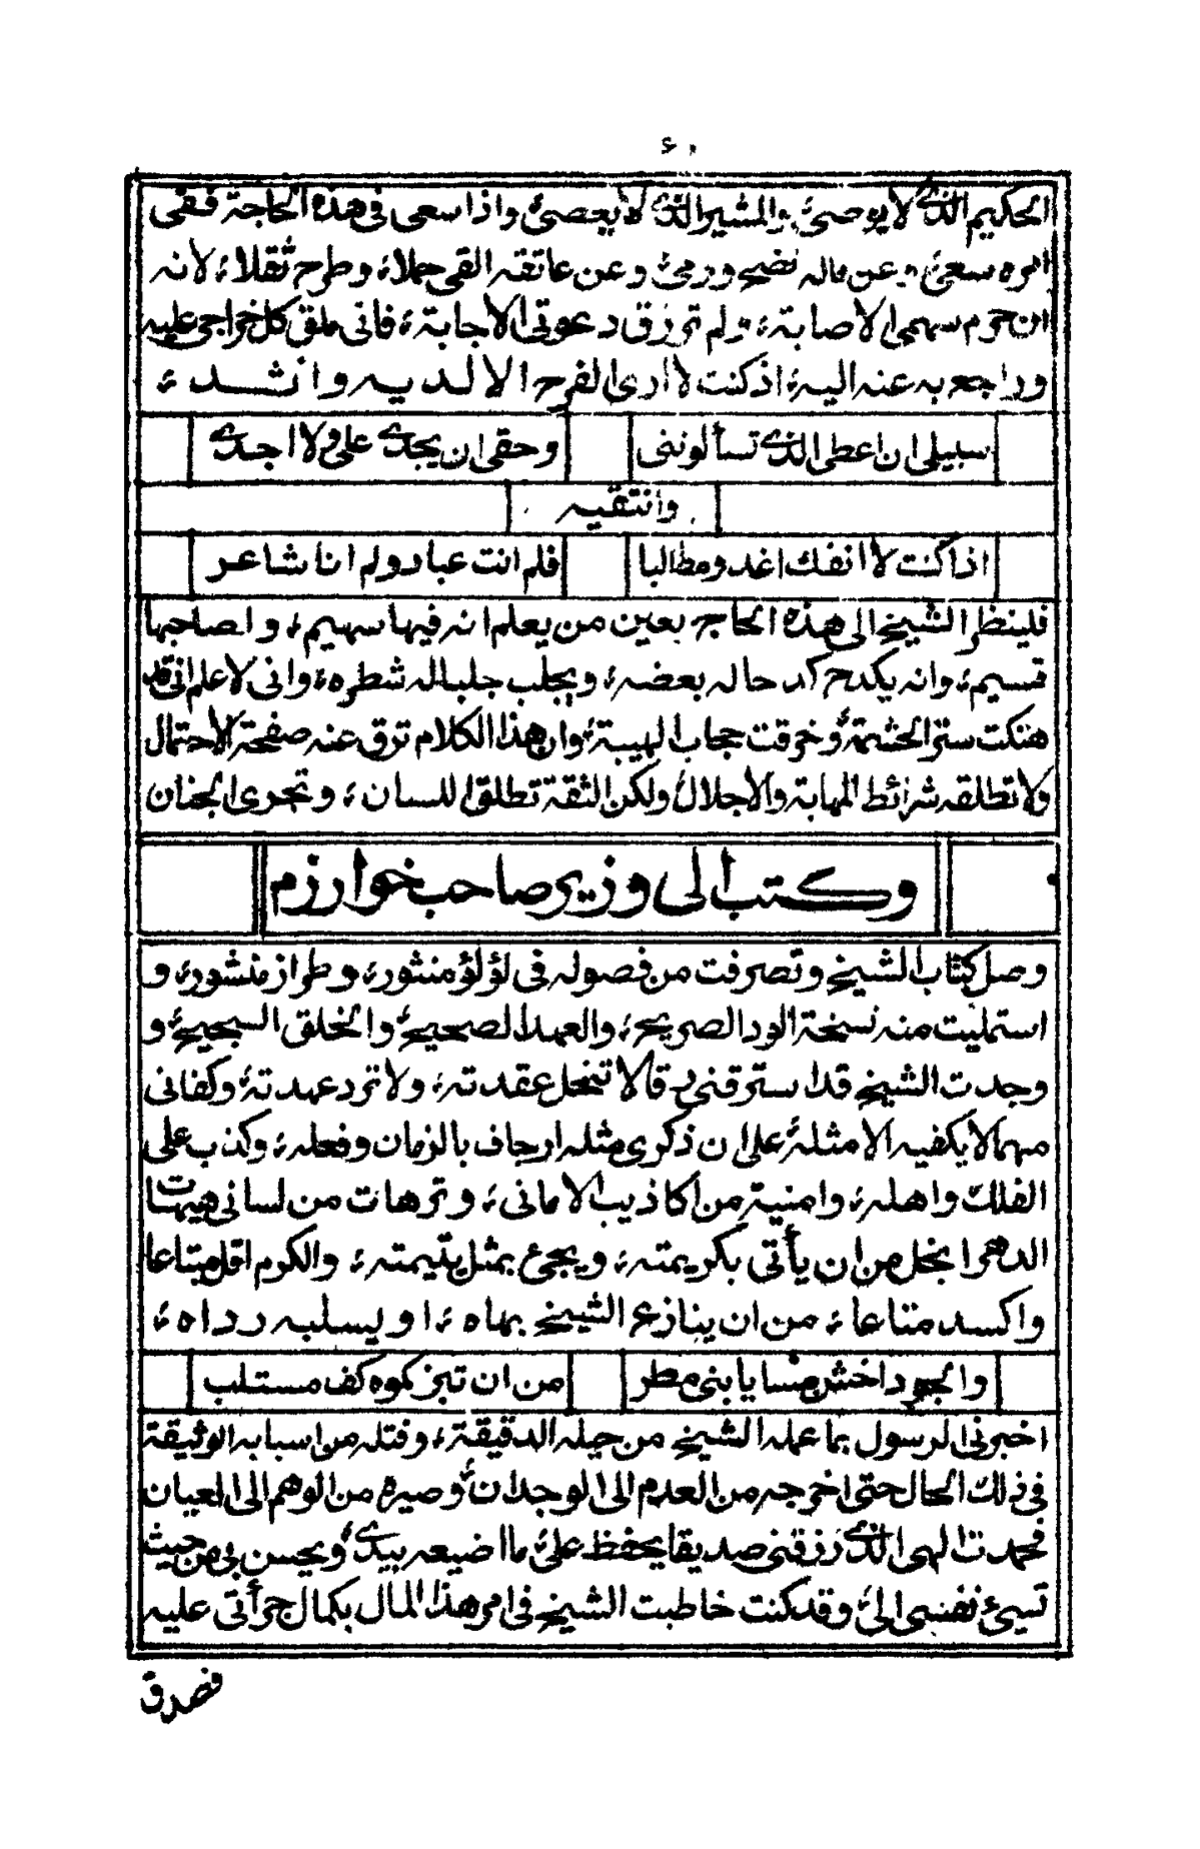 ٦٠
الحكيم الذى لا يوصى، والمشير الذى لا يعصى، واذا سعى فى هذه الحاجة ففى
امره سعى، وعن ماله نضح ورمى، وعن عاتقه القى حملا، وطرح ثقلا، لانه
ان حرم سهمى الاصابة، ولم ترزق دعوتى الاجابة، فانى ملق كل خراجى عليه
وراجع به عنه اليه، اذ كنت لا ارى الفرح الا لديه وانشده،
سبيلى ان اعطى الذى تسألوننى وحقى ان يجدى على ولا اجدى
وأنتقيه
اذا كنت لا انفك اغدو مطالبا فلم انت عباد ولم انا شاعر
فلينظر الشيخ الى هذه الحاجة بعين من يعلم انه فيها سهيم، ولصاحبها
قسيم، وانه يكدح كد حاله بعضه، ويجلب جلبا له شطره، وانى لا علم انى قد
هتكت ستر الحشمة، وخرقت حجاب الهيبة، وان هذا الكلام ترق عنه صفحة الاحتمال
ولا تطلقه شرائط المهابة والاجلال، ولكن الثقة تطلق اللسان، وتجرى الجنان
وكتب الى وزير صاحب خوارزم
وصل كتاب الشيخ وتصرفت من فصوله فى لؤلؤ منثور، وطراز منشور، و
استمليت منه نسخة الود الصريح، والعهد الصحيح، والخلق السجيح، و
وجدت الشيخ قد استرقنى رقا لا تنحل عقدته، ولا ترد عهدته، وكفانى
مهما لا يكفيه الا مثله، على ان ذكرى مثله ارجاف بالزمان وفعله، وكذب على
الفلك واهله، وامنية من اكاذيب الامانى، وترهات من لسانى هيهات
الدهر ابخل من ان يأتى بكريمته، ويجئ بمثل يتيمته، والكرم اقل مبتاعا
واكسد متاعا، من ان ينازع الشيخ بهاه، او يسلبه رداه،
والجود اخشن مسا يا بنى مطر من ان تبزكموه كف مستلب
اخبرنى الرسول بما عمله الشيخ من حيله الدقيقة، وفتله من اسبابه الوثيقة
فى ذلك الحال حتى اخرجه من العدم الى الوجدان، وصيره من الوهم الى العيان
فحمدت الهى الذى رزقنى صديقا يحفظ على ما اضيعه بيدى، ويحسن بى من حيث
تسئ نفسى الى، وقد كنت خاطبت الشيخ فى امر هذا المال بكمال جرأتى عليه
فصدق